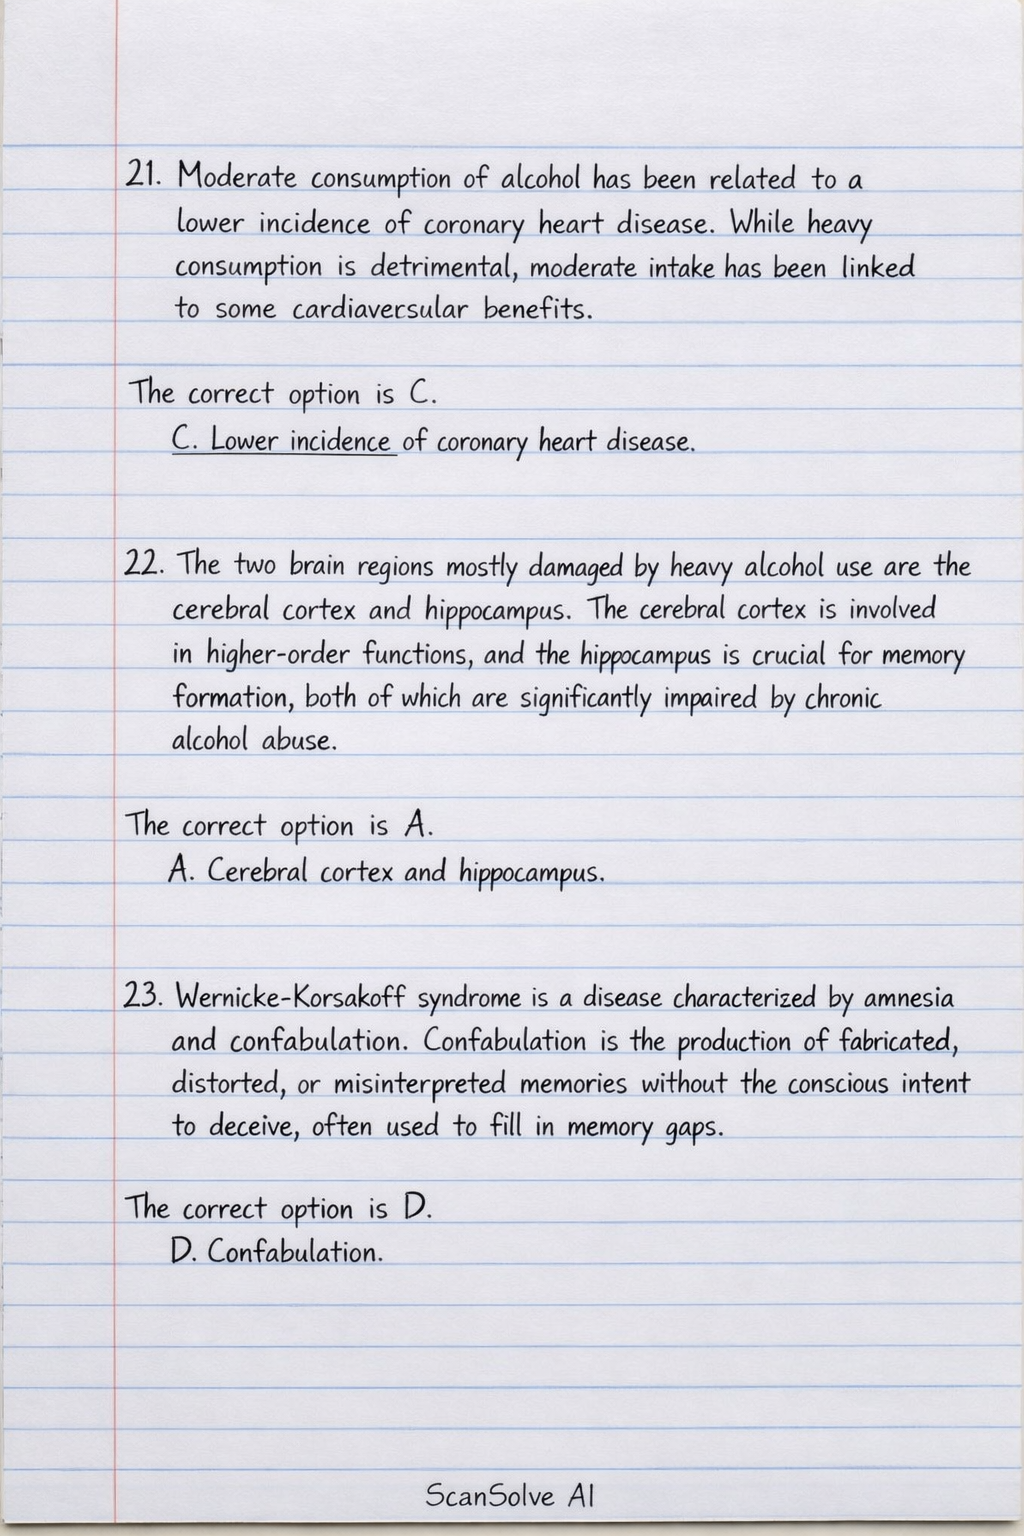 21. Moderate consumption of alcohol has been related to a
lower incidence of coronary heart disease. While heavy
consumption is detrimental, moderate intake has been linked
to some cardiaversular benefits.
The correct option is C.
C. Lower incidence of coronary heart disease.
22. The two brain regions mostly damaged by heavy alcohol use are the
cerebral cortex and hippocampus. The cerebral cortex is involved
in higher-order functions, and the hippocampus is crucial for memory
formation, both of which are significantly impaired by chronic
alcohol abuse.
The correct option is A.
A. Cerebral cortex and hippocampus.
23. Wernicke-Korsakoff syndrome is a disease characterized by amnesia
and confabulation. Confabulation is the production of fabricated,
distorted, or misinterpreted memories without the conscious intent
to deceive, often used to fill in memory gaps.
The correct option is D.
D. Confabulation.
ScanSolve AI